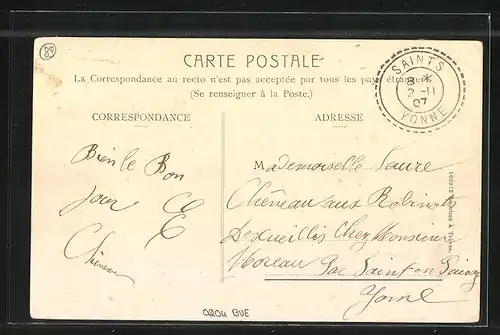 89
CARTE POSTALE
La Correspondance au recto n'est pas acceptée par tous les pays étrangers.
(Se renseigner à la Poste.)
SAINTS
8 *
2 -11
07
YONNE
CORRESPONDANCE
ADRESSE
Bien le Bon
jour
Chéneau
Mademoiselle Laure
Chéneau aux Robinots
Chez Monsieur
Moreau Par Saint en Puisaye
Yonne